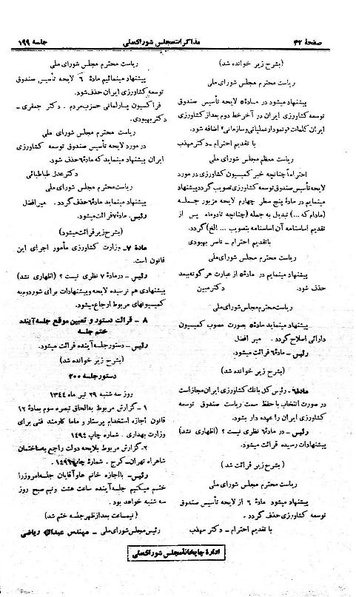 صفحه ۴۲
مذاکرات مجلس شورای ملی
جلسه ۱۹۹
(بشرح زیر خوانده شد)
ریاست محترم مجلس شورای ملی
پیشنهاد میشود در ماده ۵ لایحه تأسیس صندوق
توسعه کشاورزی ایران در آخر خط دوم بعد از کشاورزی
ایران کلمات «و نمودار عملیاتی و سازمانی» اضافه شود.
با تقدیم احترام - دکتر مهذب
ریاست معظم مجلس شورای ملی
احتراماً چنانچه خبر کمیسیون کشاورزی در مورد
لایحه تأسیس صندوق توسعه کشاورزی تصویب گردد پیشنهاد
مینمایم در ماده پنج سطر چهارم لایحه مزبور جمله
(مادام که ...) تبدیل به جمله (چنانچه تا دو ماه پس از
تقدیم اساسنامه آن اساسنامه بتصویب ... الخ) گردد.
با تقدیم احترام - ناصر بهبودی
ریاست محترم مجلس شورای ملی
پیشنهاد مینمایم در ماده ۵ از عبارت هر گونه ببعد
حذف شود. دکتر مبین
ریاست محترم مجلس شورای ملی
پیشنهاد مینماید ماده ۵ بصورت مصوب کمیسیون
دارائی اصلاح گردد. میر افضل
رئیس - ماده ۶ قرائت میشود.
(بشرح زیر خوانده شد)
ماده ۶ - رئیس کل بانک کشاورزی ایران مجاز است
در صورت انتخاب با حفظ سمت ریاست صندوق توسعه
کشاورزی ایران را عهده دار بشود.
رئیس - در ماده ۶ نظری نیست؟ (اظهاری نشد)
پیشنهادات رسیده قرائت میشود.
(بشرح زیر خوانده شد)
ریاست محترم مجلس شورای ملی
پیشنهاد میشود ماده ۶ از لایحه تأسیس صندوق
توسعه کشاورزی حذف گردد.
با تقدیم احترام - دکتر مهذب
ریاست محترم مجلس شورای ملی
پیشنهاد مینمائیم ماده ۶ لایحه تأسیس صندوق
توسعه کشاورزی ایران حذف شود.
فراکسیون پارلمانی حزب مردم. دکتر جعفری -
دکتر بهبودی.
ریاست محترم مجلس شورای ملی
در مورد لایحه تأسیس صندوق توسعه کشاورزی
ایران پیشنهاد مینماید که ماده ۶ حذف شود.
دکتر عدل طباطبائی
ریاست محترم مجلس شورای ملی
پیشنهاد مینماید ماده ۶ حذف گردد. میر افضل
رئیس - ماده ۷ قرائت میشود.
(بشرح زیر قرائت میشود)
ماده ۷ - وزارت کشاورزی مأمور اجرای این
قانون است.
رئیس - در ماده ۷ نظری نیست؟ (اظهاری نشد)
نظری هم نرسیده لایحه و پیشنهادات برای شور دوم به
کمیسیونهای مربوط ارجاع میشود.
۸ - قرائت دستور و تعیین موقع جلسه آینده
ختم جلسه
رئیس - دستور جلسه آینده قرائت میشود.
(بشرح زیر خوانده شد)
دستور جلسه ۲۰۰
روز سه شنبه ۲۹ تیر ماه ۱۳۴۴
۱ - گزارش مربوط به الحاق تبصره سوم بماده ۱۲
قانون اجازه استخدام پرستار و ماما کارمند فنی برای
وزارت بهداری. شماره چاپ ۱۴۹۲
۲ - گزارش مربوط بلایحه دولت راجع به ساختمان
شاهراه تهران - کرج. شماره چاپ
رئیس - با اجازه خانمها و آقایان جلسه امروز را
ختم میکنیم جلسه آینده ساعت هشت و نیم صبح روز
سه شنبه خواهد بود.
(نیمساعت بعد از ظهر جلسه ختم شد)
رئیس مجلس شورای ملی - مهندس عبدالله ریاضی
اداره چاپخانه مجلس شورای ملی